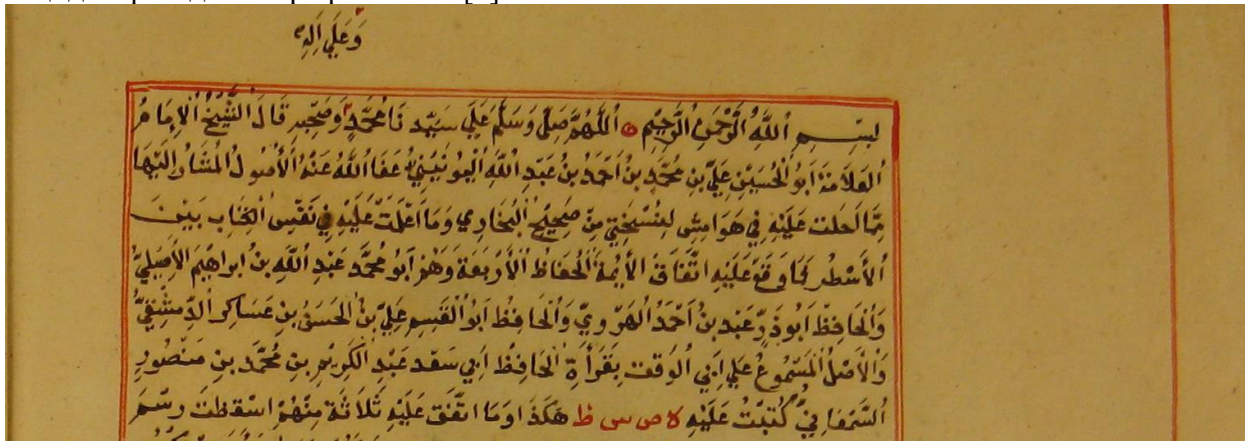 وَعَلَي اٰلِهِ
بسم اللّٰه الرَّحْمٰنِ الرَّحِيْمِ اَللّٰهُمَّ صَلِّ وَسَلَّمْ عَلَي سَيِّدِنَا مُحَمَّدٍ وَصَحْبِهِ قَالَ الشَّيْخُ الْاِمَامُ
العَلَامَةُ اَبُو الْحُسَيْنِ عَلِيُّ بن مُحَمَّدِ بن اَحْمَدَ بنِ عَبْدِ اللّٰهِ اليُونِيْنِيُّ عَفَا اللّٰهُ عَنْهُ اَلْاُصُولُ الْمُشَارُ اِلَيْهَا
مِمَّا اَحَلت عَلَيْهِ فِي هَوَامِشِ لِنُسْخَتِي مِنْ صَحِيْحِ الْبُخَارِي وَمَا اَعْلَمْتُ عَلَيْهِ فِي نَفْسِ الكِتَابِ بَيْنَ
اَلْاَسْطُرِ فَمَا وَقَعَ عَلَيْهِ اتِّفَاقُ الْاَئِمَّةِ الْحُفَّاظِ الْاَرْبَعَةِ وَهُمْ اَبُو مُحَمَّد عَبْدِ اللّٰهِ بْن اِبرَاهِيْمَ الْاَصِيْلِيُّ
وَالْحَافِظُ اَبُو ذَرٍّ عَبْد بنُ اَحْمَدَ الهَرَوِيُّ وَالْحَافِظُ اَبُو الْقَسِمِ عَلِيُّ بْنُ الْحَسَنِ بْنِ عَسَاكِر الدِّمَشْقِيُّ
وَالْاَصْلُ الْمَسْمُوعُ عَلَي اَبِي الْوَقْتِ بِقَرَأَةِ الْحَافِظِ اَبِي سَعْد عَبْدِ الْكَرِيْمِ بن مُحَمَّدِ بن مَنْصُورٍ
السَّمْعَانِيِّ كُتِبَتْ عَلَيْهِ ه ص س ظ هٰكَذَا وَمَا اتَّفَقَ عَلَيْهِ ثَلَاثَةٌ مِنْهُمْ اسْقَطتُ رَسْمَ